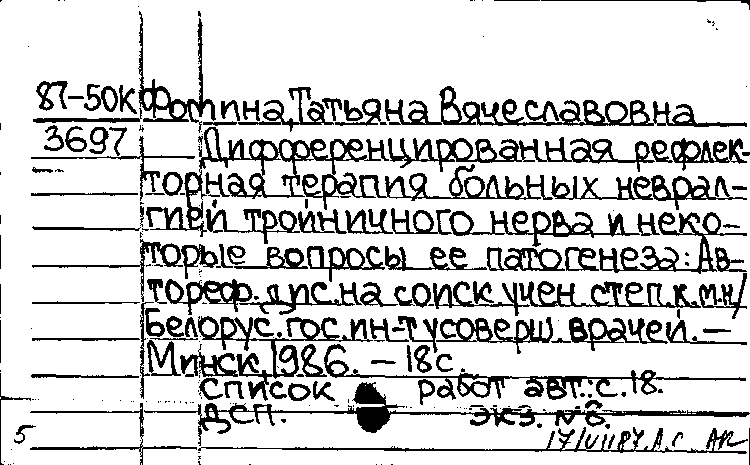 87-50К Фомина, Татьяна Вячеславовна
3697 Дифференцированная рефлек-
торная терапия больных неврал-
гией тройничного нерва и неко-
торые вопросы ее патогенеза: Ав-
тореф. дис. на соиск. учен. степ. к.м.н/
Белорус. гос. ин-т усоверш. врачей. —
Минск, 1986. — 18с.
список работ авт.: с. 18.
ДСП. экз. №8.
5 17/VII87. А.С.